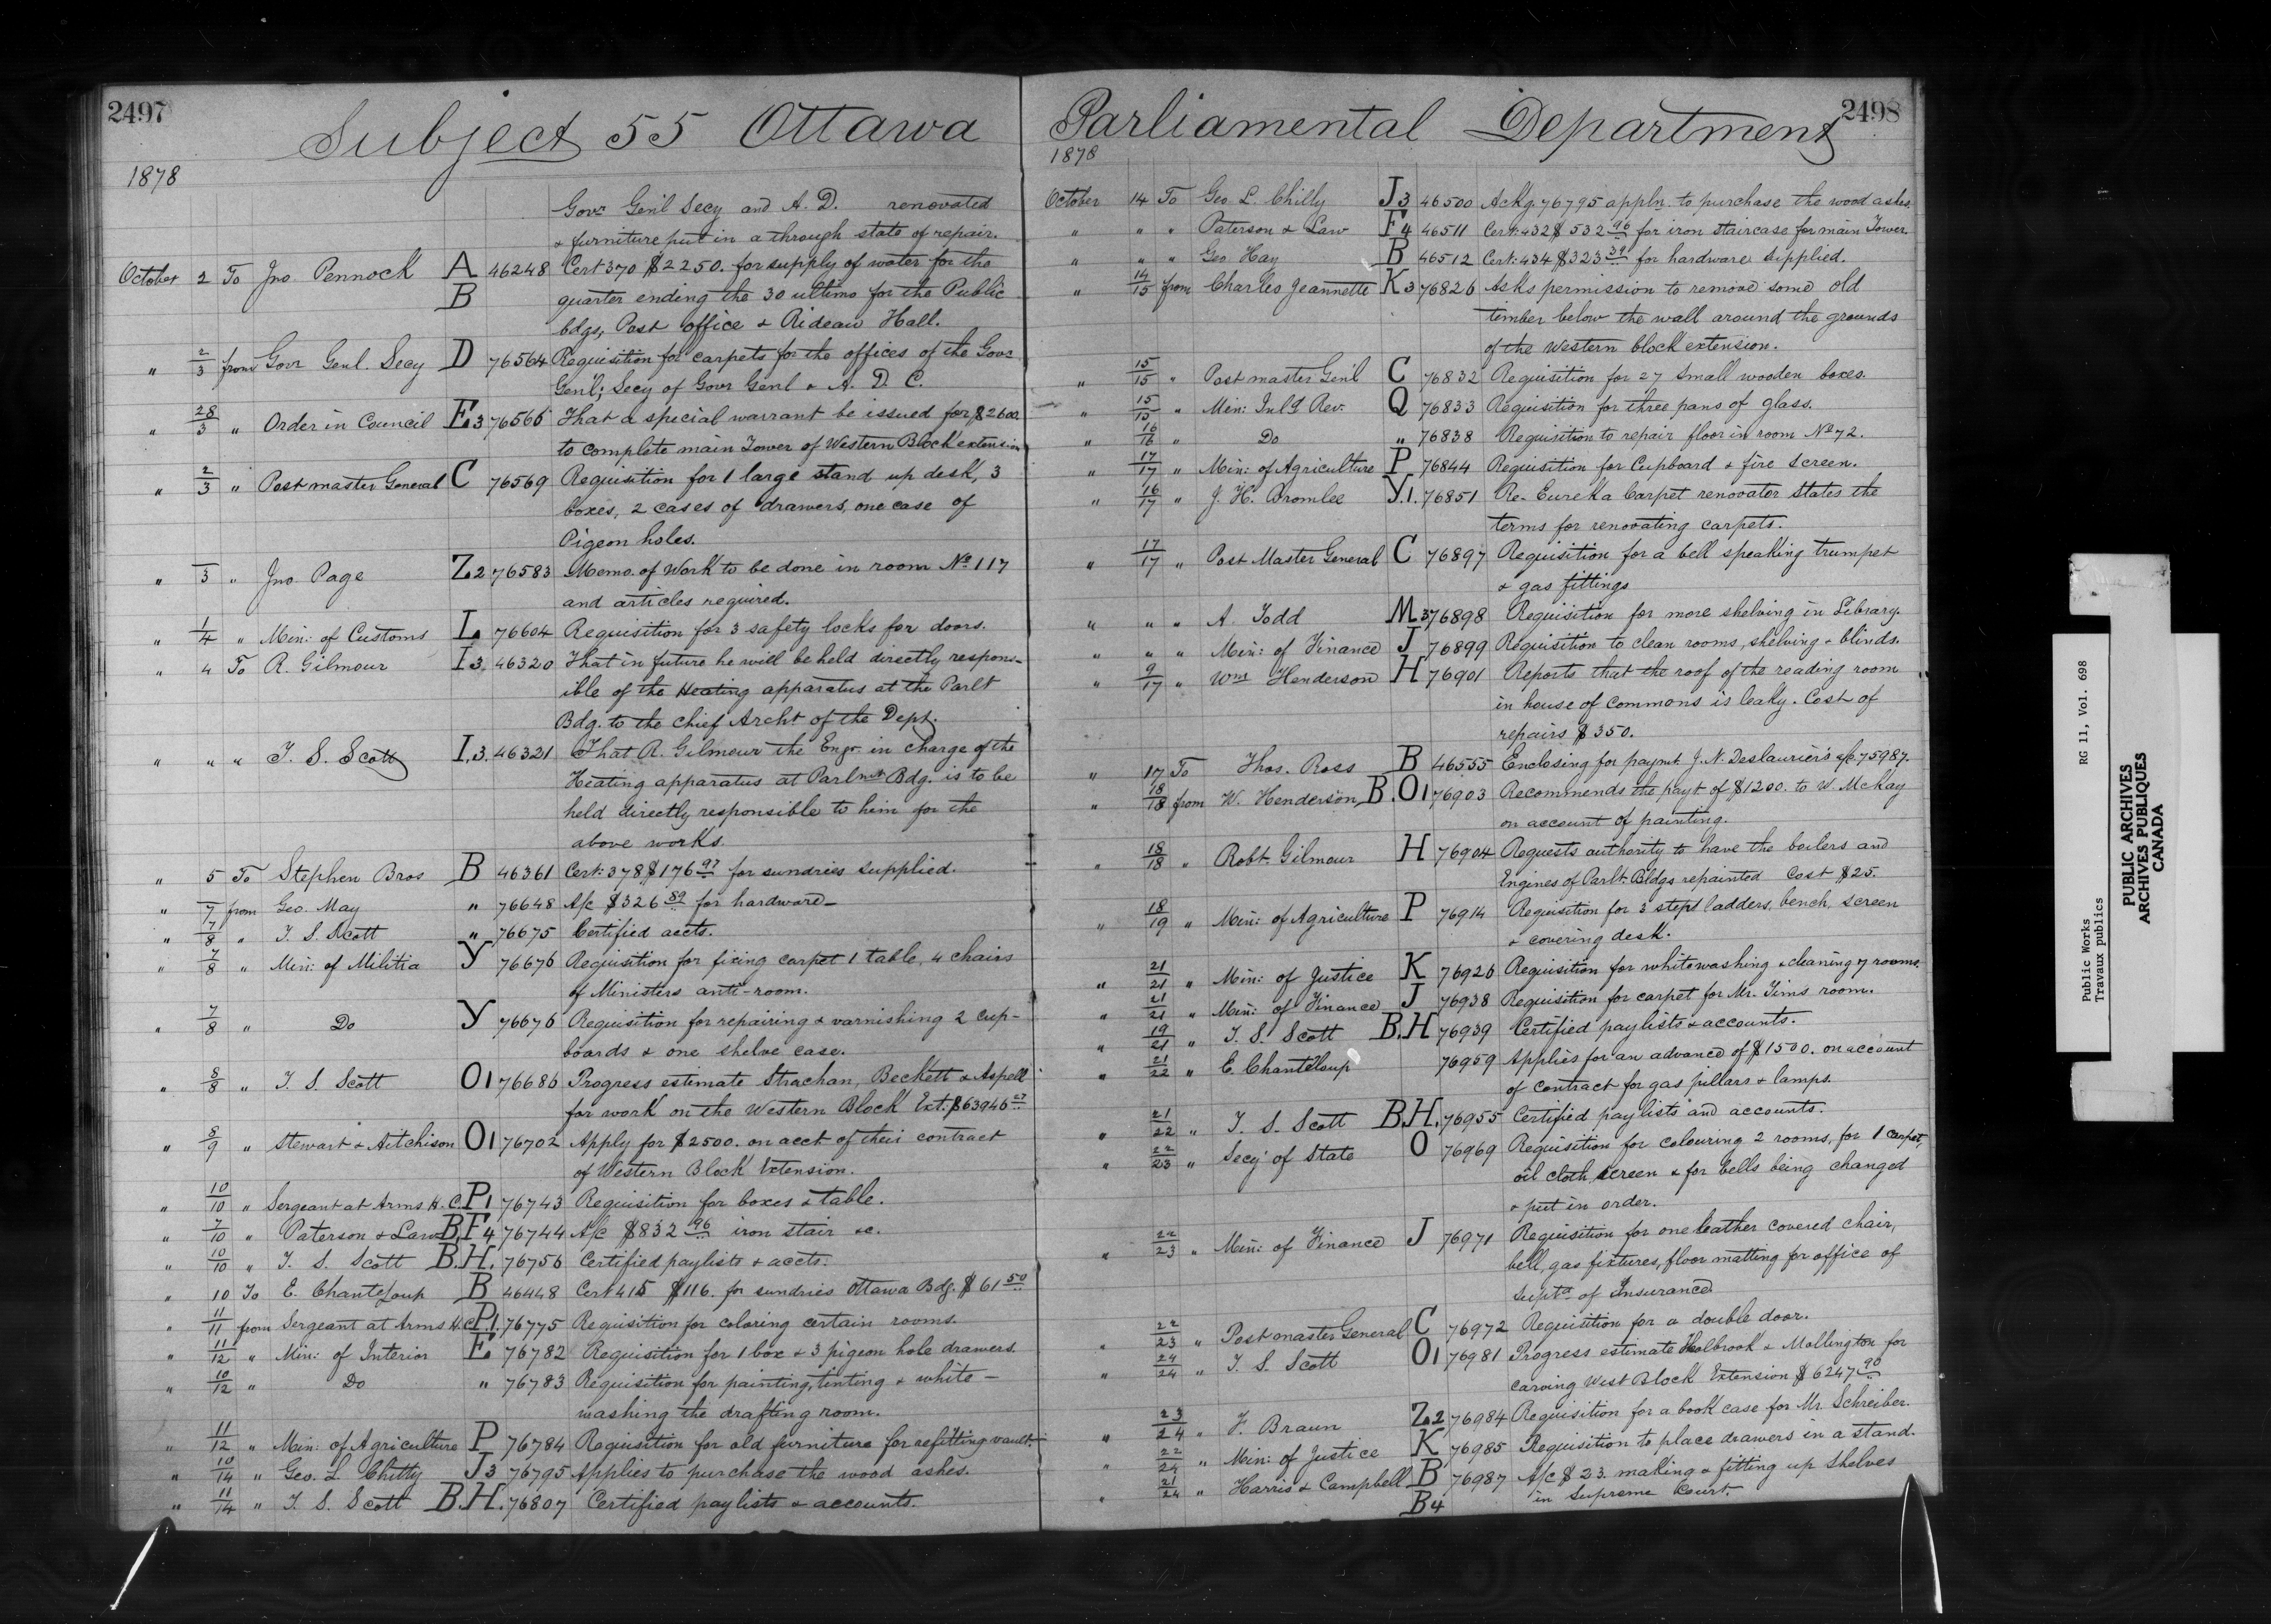 2497
Subject 55 Ottawa
1878
Govr Gen'l Secy and A. D. renovated
& furniture put in a through state of repair.
October 2 To Jno Pennock A 46248 Cert 370 $2250. for supply of water for the
B quarter ending the 30 ultimo for the Public
bdgs, Post office & Rideau Hall.
" 2/3 from Govr Genl. Secy D 76564 Requisition for carpets for the offices of the Govr
Gen'l; Secy of Govr Genl & A. D. C.
" 28/3 " Order in Council E3 76566 That a special warrant be issued for $2600.
to complete main Tower of Western Block extension
" 2/3 " Postmaster General C 76569 Requisition for 1 large stand up desk, 3
boxes, 2 cases of drawers, one case of
Pigeon holes.
" /3 " Jno Page Z2 76583 Memo. of Work to be done in room No 117
and articles required.
" 1/4 " Min: of Customs L 76604 Requisition for 3 safety locks for doors.
" 4 To R. Gilmour I3 46320 That in future he will be held directly respons-
ible of the Heating apparatus at the Parlt
Bdg. to the chief Archt of the Dept.
" " " T. S. Scott I.3. 46321 That R. Gilmour the Engr. in charge of the
Heating apparatus at Parlmt Bdg. is to be
held directly responsible to him for the
above works.
" 5 To Stephen Bros B 46361 Cert: 378 $176 97 for sundries supplied.
" /7 from Geo. May " 76648 A/c $326 89 for hardware -
" 7/8 " T. S. Scott " 76675 Certified accts.
" 7/8 " Min: of Militia Y 76676 Requisition for fixing carpet 1 table, 4 chairs
of Ministers anti-room.
" 7/8 " Do Y 76676 Requisition for repairing & varnishing 2 cup-
boards & one shelve case.
" 8/8 " T. S. Scott O1 76686 Progress estimate Strachan, Beckett & Aspell
for work on the Western Block Ext: $63946 27
" 8/9 " Stewart & Aitchison O1 76702 Apply for $2500. on acct of their contract
of Western Block Extension.
" 10/10 " Sergeant at Arms H. C. P1 76743 Requisition for boxes & table.
" 7/10 " Paterson & Law B, F4 76744 A/c $832 96 iron stair &c.
" 10/10 " T. S. Scott B.H. 76756 Certified paylists & accts.
" 10 To E. Chanteloup B 46448 Cert 415 $116. for sundries Ottawa Bdg. $61 50
" 11/11 from Sergeant at Arms H.C. P1. 76775 Requisition for coloring certain rooms.
" 11/12 " Min: of Interior E 76782 Requisition for 1 box & 3 pigeon hole drawers.
" 10/12 " Do " 76783 Requisition for painting, tinting & white-
washing the drafting room.
" 11/12 " Min: of Agriculture P 76784 Requisition for old furniture for refitting vault.
" 10/14 " Geo. L. Chitty J3 76795 Applies to purchase the wood ashes.
" 11/14 " T. S. Scott B.H. 76807 Certified paylists & accounts.
2498
Parliamental Department
1878
October 14 To Geo. L. Chilly J3 46500 Ackg. 76795 appln. to purchase the wood ashes.
" " " Paterson & Law F4 46511 Cert: 432 $532 96 for iron staircase for main Tower.
" " " Geo Hay B 46512 Cert: 434 $323 39 for hardware supplied.
" 14/15 from Charles Jeannette K3 76826 Asks permission to remove some old
timber below the wall around the grounds
of the Western block extension.
" 15/15 " Postmaster Gen'l C 76832 Requisition for 27 small wooden boxes.
" 15/15 " Min: Inl'd Rev. Q 76833 Requisition for three pans of glass.
" 16/16 " Do " 76838 Requisition to repair floor in room No 72.
" 17/17 " Min: of Agriculture P 76844 Requisition for Cupboard & fire screen.
" 16/17 " J. H. Bromlee Y.1. 76851 Re- Eureka Carpet renovator states the
terms for renovating carpets.
" 17/17 " Post Master General C 76897 Requisition for a bell speaking trumpet
& gas fittings
" " " A. Todd M3 76898 Requisition for more shelving in Library.
" " " Min: of Finance J 76899 Requisition to clean rooms, shelving & blinds.
" 9/17 " Wm Henderson H 76901 Reports that the roof of the reading room
in house of Commons is leaky. Cost of
repairs $350.
" 17 To Thos. Ross B 46555 Enclosing for paymt J. N. Deslaurier's a/c 75987.
" 18/18 from W. Henderson B. O1 76903 Recommends the payt of $1200. to W. McKay
on account of painting.
" 18/18 " Robt. Gilmour H 76904 Requests authority to have the boilers and
Engines of Parlt Bldgs repainted Cost $25.
" 18/19 " Min: of Agriculture P 76914 Requisition for 3 step ladders, bench, screen
& covering desk.
" 21/21 " Min: of Justice K 76926 Requisition for whitewashing & cleaning 7 rooms.
" 21/21 " Min: of Finance J 76938 Requisition for carpet for Mr. Tims room.
" 19/21 " T. S. Scott B.H 76939 Certified paylists & accounts.
" 21/22 " E. Chanteloup 76959 Applies for an advance of $1500. on account
of contract for gas pillars & lamps.
" 21/22 " T. S. Scott B.H. 76955 Certified paylists and accounts.
" 22/23 " Secy of State O 76969 Requisition for colouring 2 rooms, for 1 carpet,
oil cloth, screen & for bells being changed
& put in order.
" 22/23 " Min: of Finance J 76971 Requisition for one leather covered chair,
bell, gas fixtures, floor matting for office of
Supt of Insurance.
" 22/23 " Postmaster General C 76972 Requisition for a double door.
" 24/24 " T. S. Scott O1 76981 Progress estimate Holbrook & Mollington for
carving West Block Extension $6247 90
" 23/24 " F. Braun Z2 76984 Requisition for a book case for Mr. Schreiber.
" 22/24 " Min: of Justice K 76985 Requisition to place drawers in a stand.
" 21/24 " Harris & Campbell B 76987 A/c $23. making & fitting up shelves
B4 in Supreme Court.
RG 11, Vol. 698
Public Works
Travaux publics
PUBLIC ARCHIVES
ARCHIVES PUBLIQUES
CANADA